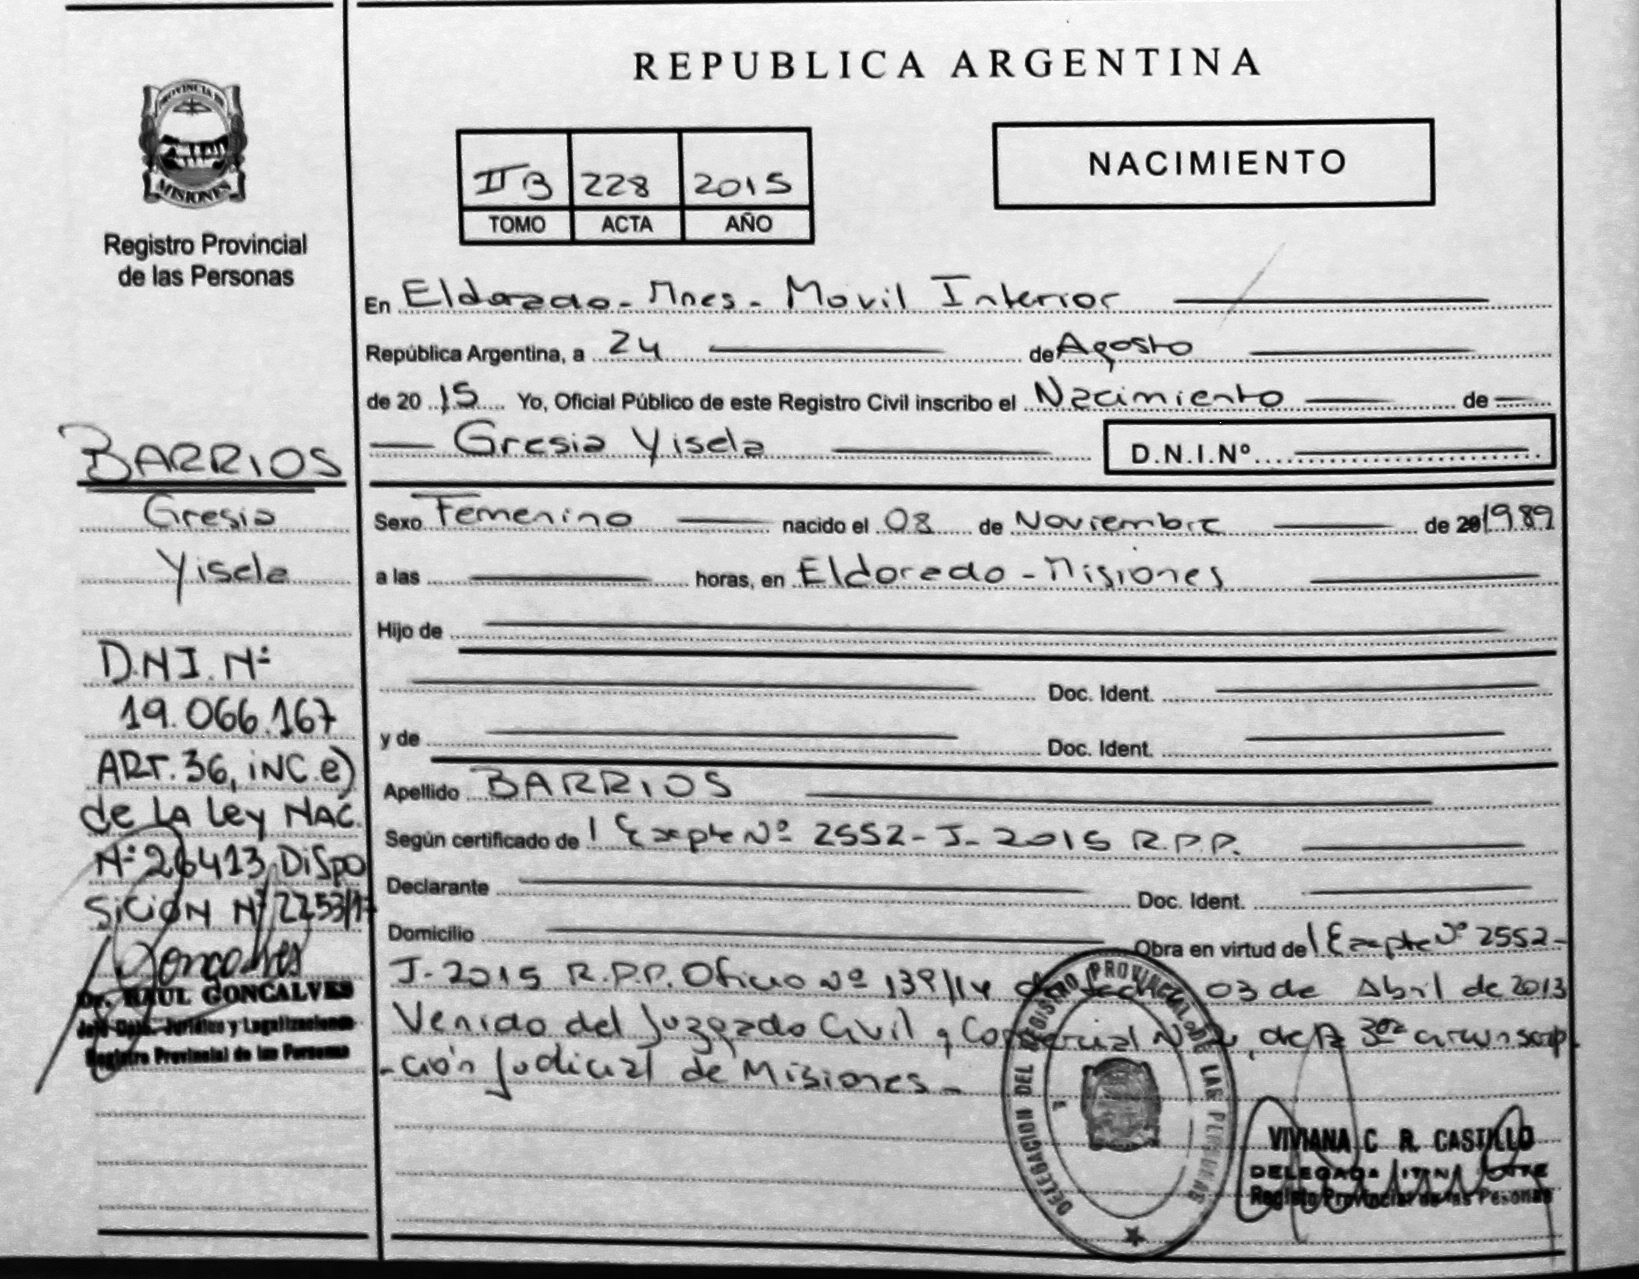 REPUBLICA ARGENTINA
PROVINCIA DE
MISIONES
Registro Provincial
de las Personas
II B 228 2015
TOMO ACTA AÑO
NACIMIENTO
En Eldorado - Mnes - Movil Interior
República Argentina, a 24 de Agosto
de 20 15 Yo, Oficial Público de este Registro Civil inscribo el Nacimiento de
Gresia Yisela D.N.I.Nº
BARRIOS
Gresia
Yisela
D.N.I. Nº
19.066.167
ART. 36, inc. e)
de LA Ley NAC.
Nº 26413 Dispo
sición Nº 2253/1
Goncalves
Dr. RAUL GONCALVES
Jefe Dpto. Jurídico y Legalizaciones
Registro Provincial de las Personas
Sexo Femenino nacido el 08 de Noviembre de 20 1989
a las horas, en Eldorado - Misiones
Hijo de
Doc. Ident.
y de Doc. Ident.
Apellido BARRIOS
Según certificado de Expte Nº 2552 - J - 2015 R.P.P.
Declarante Doc. Ident.
Domicilio Obra en virtud de Expte Nº 2552 -
J - 2015 R.P.P. Oficio Nº 139/14 de 03 de Abril de 2013
Venido del Juzgado Civil y Comercial Nº 2, de la 3ra circunscrip
-ción Judicial de Misiones -
DELEGACION DEL REGISTRO PROVINCIAL DE LAS PERSONAS
VIVIANA C R. CASTILLO
DELEGADA ITINERANTE
Registro Provincial de las Personas